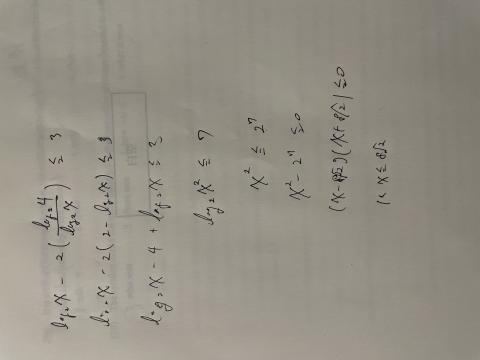 log₂x - 2(log₂4 / log₂x) ≤ 3
log₂x - 2(2 - log₂x) ≤ 3
log₂x - 4 + log₂x ≤ 3
log₂x² ≤ 7
x² ≤ 2⁷
x² - 2⁷ ≤ 0
(x-8√2)(x+8√2) ≤ 0
1< x ≤ 8√2